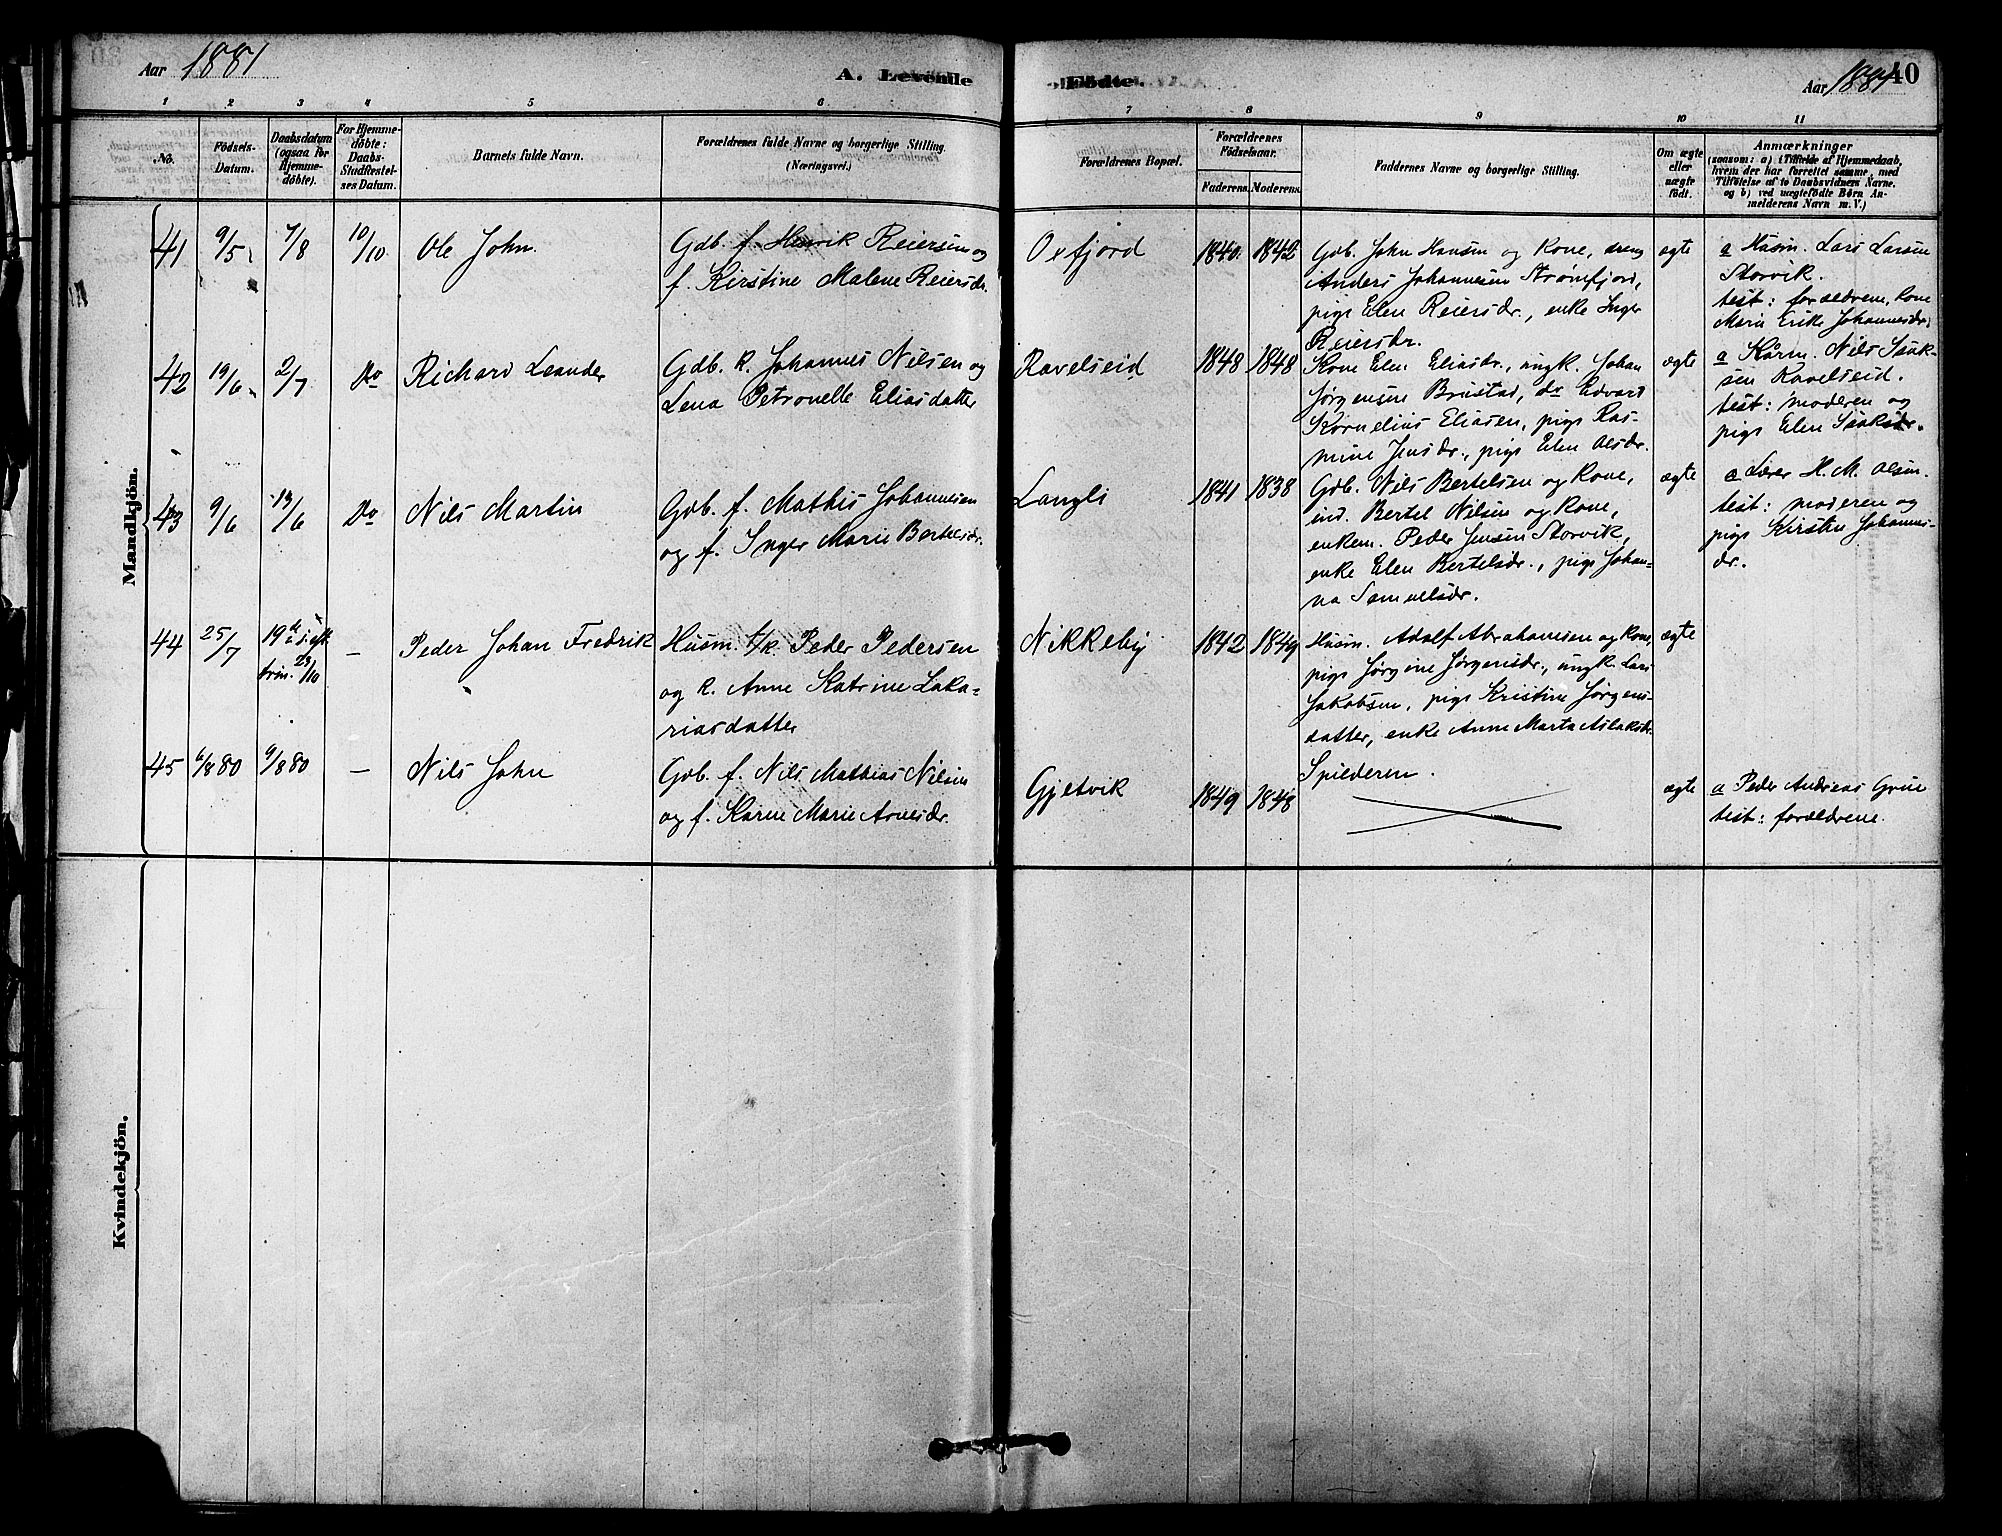 Aar 1881
A. Levende
Födte.
Aar 1881
40
1 2 3 4 5 6 7 8 9 10 11
No.
Födsels-
Datum.
Daabsdatum
(ogsaa for
Hjemme-
döbte).
For Hjemme-
döbte:
Daabs-
Stadfæstel-
ses Datum.
Barnets fulde Navn.
Forældrenes fulde Navne og borgerlige Stilling.
(Næringsvei.)
Forældrenes Bopæl.
Forældrenes
Födselsaar.
Faderens. Moderens.
Faddernes Navne og borgerlige Stilling.
Om ægte
eller
uægte
født.
Anmærkninger
(saasom: a) i Tilfælde af Hjemmedaab,
hvem der har forrettet samme, med
Tilföielse af to Daabsvidners Navne,
og b) ved uægtefödte Börn An-
melderens Navn m. V.)
Mandkjön.
41
9/5
7/8
10/10
Ole John.
Gdb. f. Henrik Reiersen og
f. Kirstine Malene Reiersdr.
Oxfjord
1840.
1842
Gdb. John Hansen og Kone, dreng
Anders Johannesen Strømfjord,
pige Elen Reiersdr., enke Inger
Reiersdr.
ægte
a Husm. Lars Larsen
Storvik.
test: forældrene, Kone
Maria Erike Johannesdr.
42
19/6
2/7
Do
Richard Leander
Gdb. k. Johannes Nilsen og
Lena Petronelle Eliasdatter
Ravelseid
1848
1848
Kone Elen Eliasdr., ungk. Johan
Jørgensen Brustad, do Edvart
Kornelius Eliasen, pige Ras-
mine Jensdr., pige Elen Olsdr.
ægte
a Kårm. Nils Isak-
sen Ravelseid.
test: moderen og
pige Elen Isaksdr.
43
9/6
19/6
Do
Nils Martin
Gdb. f. Mathis Johannesen
og f. Inger Marie Bertelsdr.
Langli
1841
1838
Gdb. Nils Bertelsen og Kone,
ind. Bertel Nilsen og Kone,
enkem. Peder Jensen Storvik,
enke Elen Bertelsdr., pige Johan-
na Samuelsdr.
ægte
a Lærer H. M. Olsen.
test: moderen og
pige Kirsten Johannes-
dr.
44
25/7
19de s. eft.
trin. 23/10
—
Peder Johan Fredrik
Husm. f/k. Peder Pedersen
og k. Anne Katrine Zaka-
riasdatter
Nikkeby
1842
1849
Husm. Adolf Abrahamsen og Kone,
pige Jørgine Jørgensdr., ungk. Lars
Jakobsen, pige Kristine Jørgens-
datter, enke Anne Marta Aslaksdr.
Spilderen.
ægte
45
6/8 80
9/8 80
—
Nils John
Gdb. f. Nils Mathias Nilsen
og f. Karen Marie Arnesdr.
Gjetvik
1849
1848
ægte
a Peder Andreas
test: forældrene.
Kvindekjön.